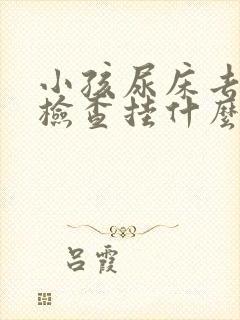 小孩尿床去
檢查掛什麼
呂霞